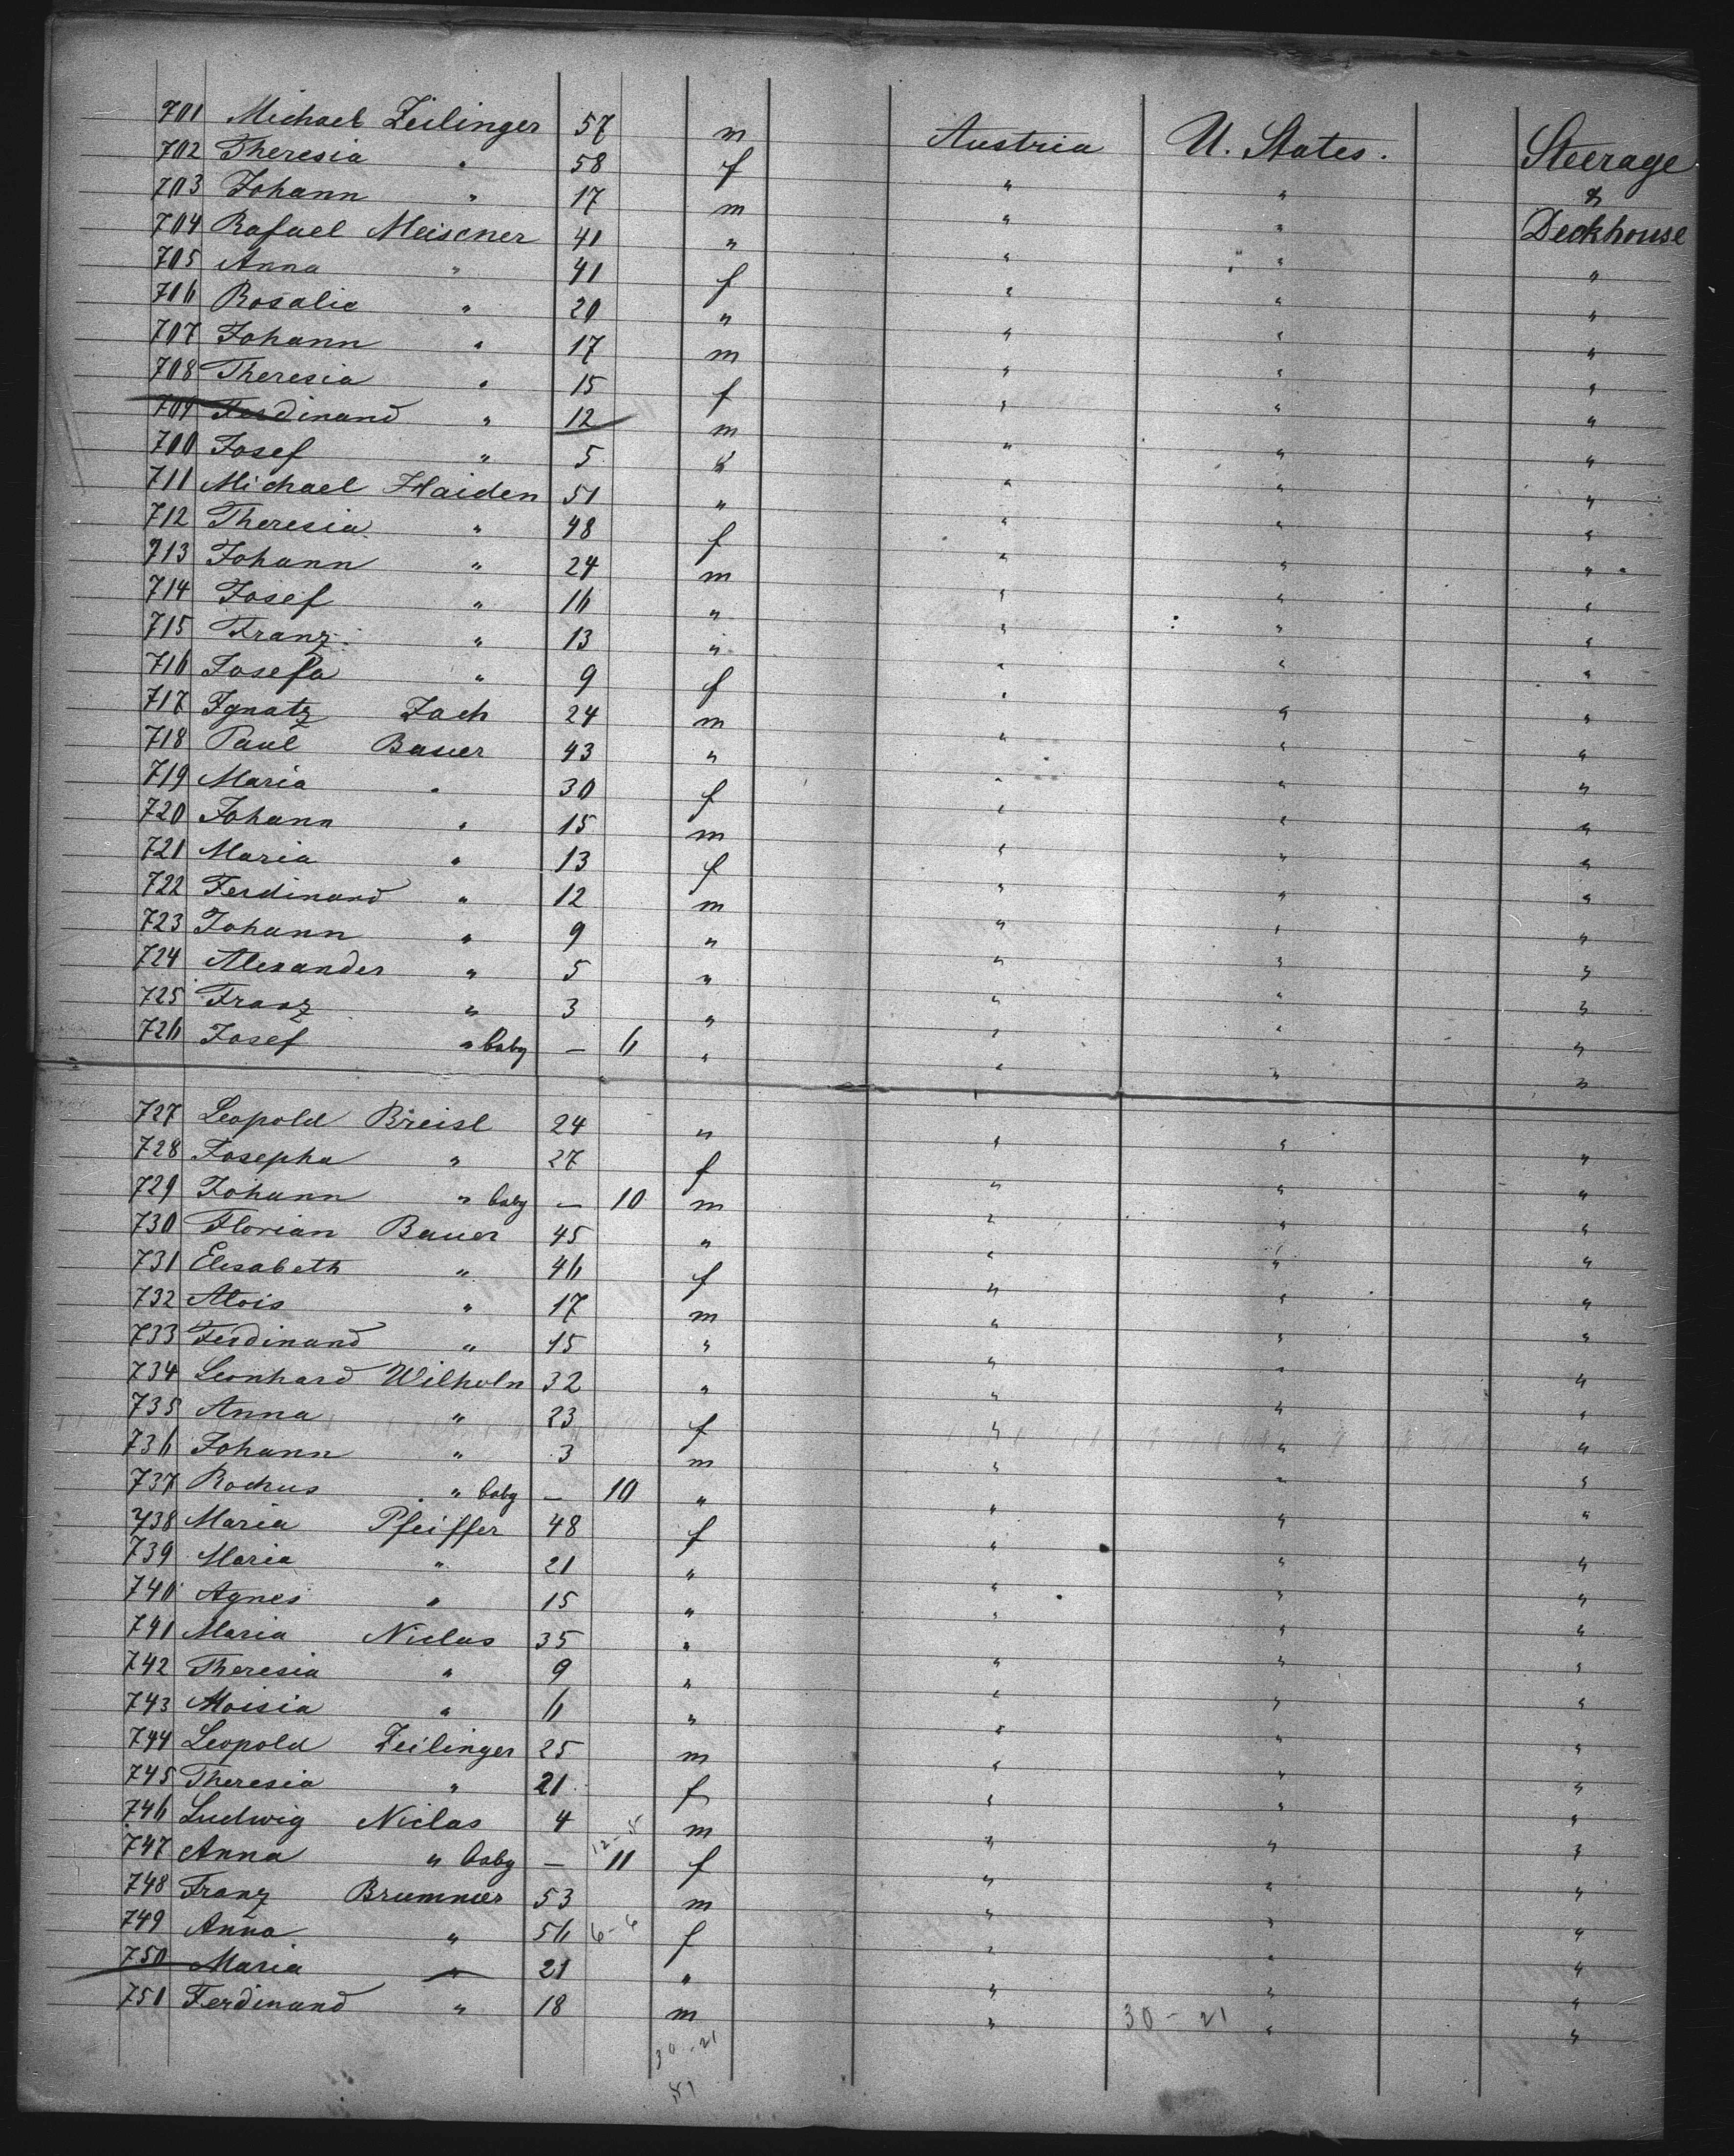 701 Michael Zeilinger 57 m Austria U. States. Steerage
702 Theresia " 58 f " " &
703 Johann " 17 m " " Deckhouse
704 Rafael Meisener 41 " " " "
705 Anna " 41 f " " "
706 Rosalie " 20 " " " "
707 Johann " 17 m " " "
708 Theresia " 15 f " " "
709 Ferdinand " 12 m " " "
700 Josef " 5 " " " "
711 Michael Haiden 51 " " " "
712 Theresia " 48 f " " "
713 Johann " 24 m " " "
714 Josef " 16 " " " "
715 Franz " 13 " " " "
716 Josefa " 9 f " " "
717 Ignatz Zach 24 m " " "
718 Paul Bauer 43 " " " "
719 Maria " 30 f " " "
720 Johann " 15 m " " "
721 Maria " 13 f " " "
722 Ferdinand " 12 m " " "
723 Johann " 9 " " " "
724 Alexander " 5 " " " "
725 Franz " 3 " " " "
726 Josef " baby — 6 " " " "
727 Leopold Breisl 24 " " " "
728 Josepha " 27 f " " "
729 Johann " baby — 10 m " " "
730 Florian Bauer 45 " " " "
731 Elisabeth " 46 f " " "
732 Alois " 17 m " " "
733 Ferdinand " 15 " " " "
734 Leonhard Wilholn 32 " " " "
735 Anna " 23 f " " "
736 Johann " 3 m " " "
737 Rochus " baby — 10 " " " "
738 Maria Pfeiffer 48 f " " "
739 Maria " 21 " " " "
740 Agnes " 15 " " " "
741 Maria Niclas 35 " " " "
742 Theresia " 9 " " " "
743 Aloisia " 6 " " " "
744 Leopold Zeilinger 25 m " " "
745 Theresia " 21 f " " "
746 Ludwig Niclas 4 m " " "
12-5
747 Anna " baby — 11 f " " "
748 Franz Brummer 53 m " " "
749 Anna " 56 6-6 f " " "
750 Maria " 21 " " " "
751 Ferdinand " 18 m " " "
30-21
30-21
51